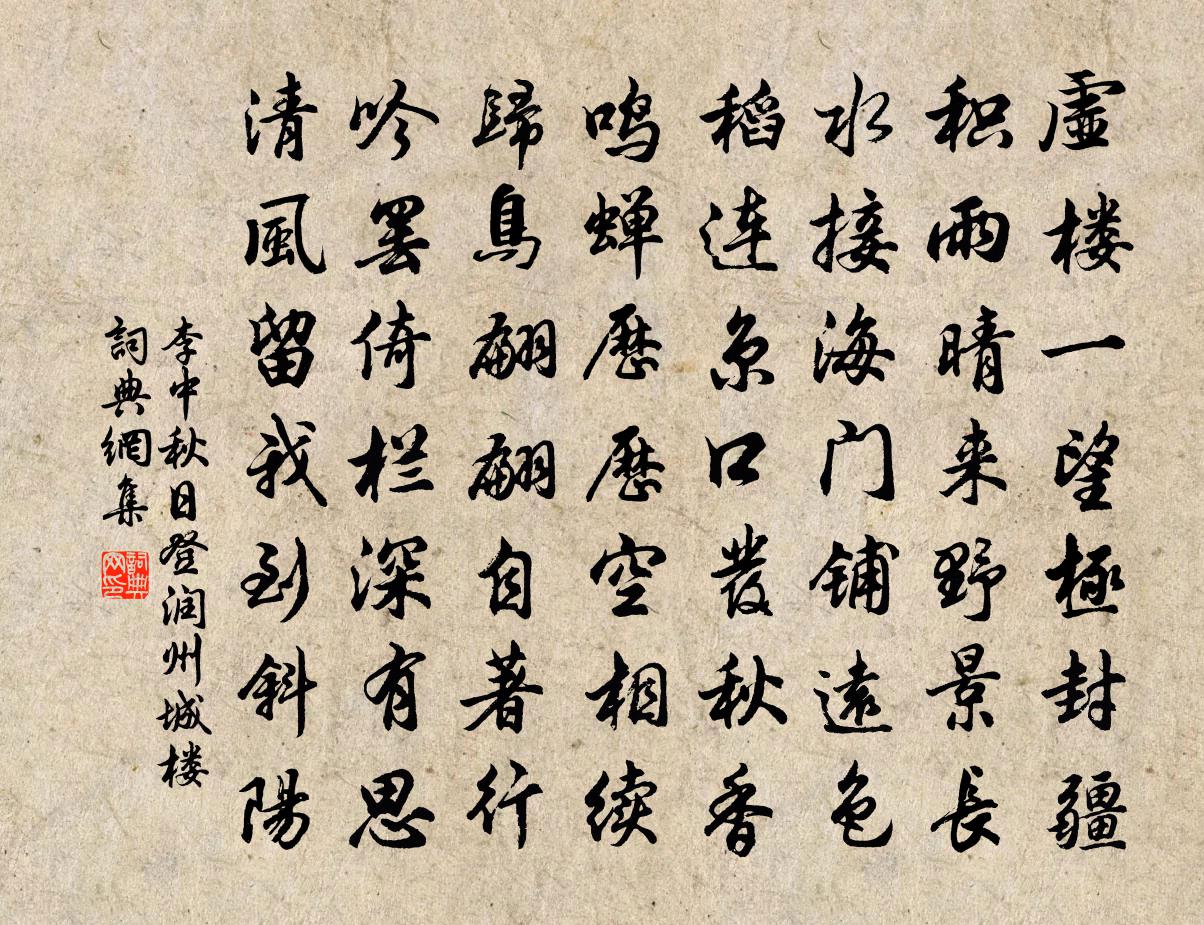 虛楼一望極封疆
积雨晴来野景長
水接海门鋪遠色
稻連京口發秋香
鸣蝉歷歷空相续
歸鳥翩翩自著行
吟罢倚栏深有思
清風留我到斜陽
李中秋日登润州城楼
詞典網集
詞典网印